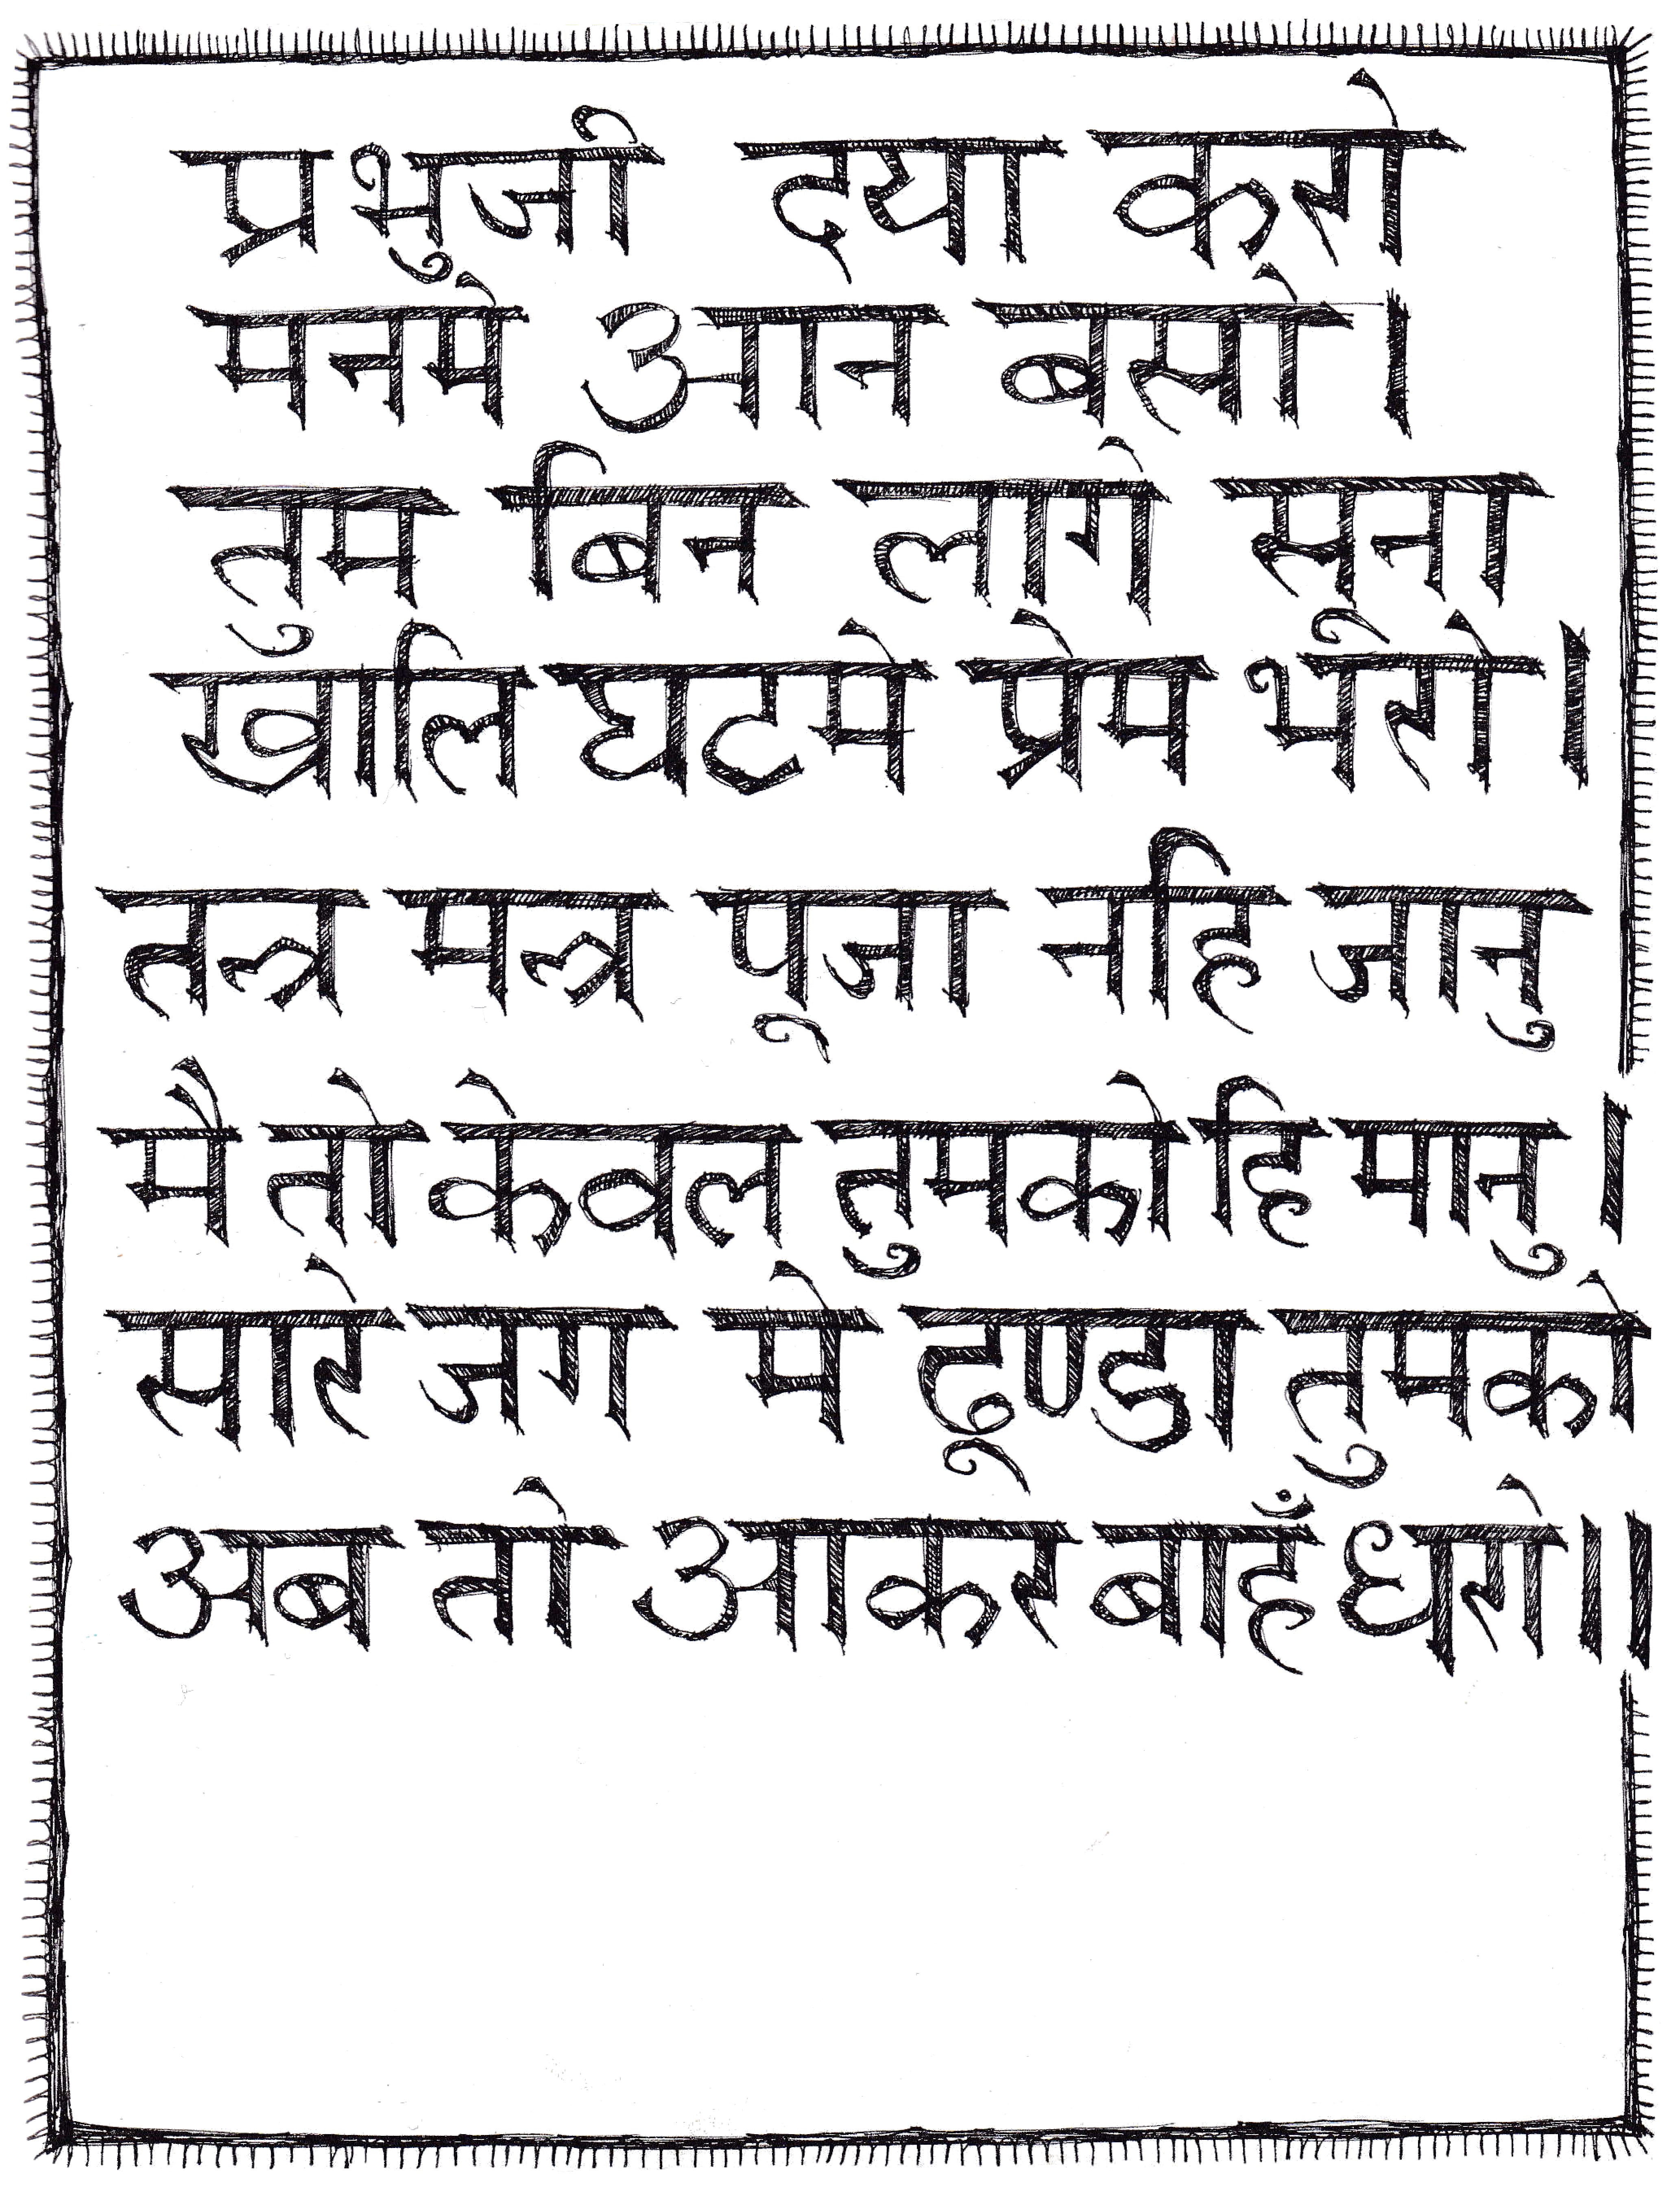 प्रभुजी दया करो
मनमे आन बसो।
तुम बिन लागे सूना
खालि घटमे प्रेम भरो।
तन्त्र मन्त्र पूजा नहि जानु
मै तो केवल तुमको हि मानु।
सारे जग मे ढूण्डा तुमको
अब तो आकर बाहँ धरो॥